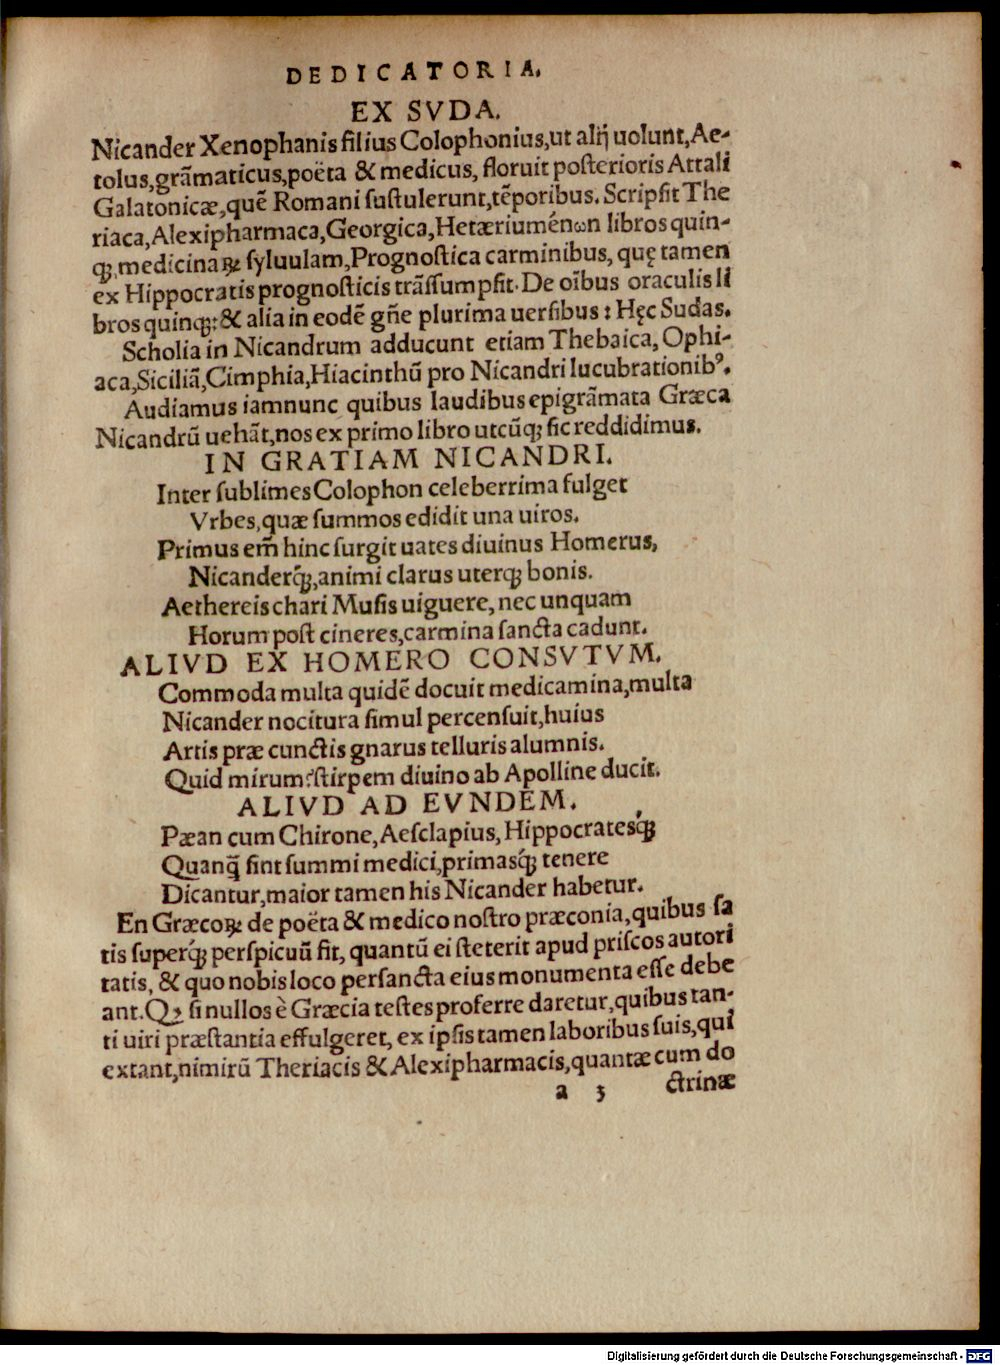 DEDICATORIA.
EX SVDA.
Nicander Xenophanis filius Colophonius,ut alij uolunt,Ae-
tolus,grãmaticus,poëta & medicus, floruit posterioris Attali
Galatonicæ,quẽ Romani sustulerunt,tẽporibus. Scripsit The
riaca,Alexipharmaca,Georgica,Hetæriuménωn libros quin-
qꝫ,medicinaꝝ syluulam,Prognostica carminibus, quę tamen
ex Hippocratis prognosticis trãssumpsit. De oĩbus oraculis li
bros quinqꝫ: & alia in eodẽ gñe plurima uersibus : Hęc Sudas.
Scholia in Nicandrum adducunt etiam Thebaica, Ophi-
aca,Siciliã,Cimphia,Hiacinthũ pro Nicandri lucubrationibꝰ.
Audiamus iamnunc quibus laudibus epigrãmata Græca
Nicandrũ uehãt,nos ex primo libro utcũqꝫ sic reddidimus.
IN GRATIAM NICANDRI.
Inter sublimes Colophon celeberrima fulget
Vrbes,quæ summos edidit una uiros.
Primus em̃ hinc surgit uates diuinus Homerus,
Nicanderqꝫ́,animi clarus uterqꝫ bonis.
Aethereis chari Musis uiguere, nec unquam
Horum post cineres,carmina sancta cadunt.
ALIVD EX HOMERO CONSVTVM.
Commoda multa quidẽ docuit medicamina,multa
Nicander nocitura simul percensuit,huius
Artis præ cunctis gnarus telluris alumnis.
Quid mirum?stirpem diuino ab Apolline ducit.
ALIVD AD EVNDEM.
Pæan cum Chirone, Aesclapius, Hippocratesqꝫ́
Quanq̃ sint summi medici,primasqꝫ́ tenere
Dicantur,maior tamen his Nicander habetur.
En Græcoꝝ de poëta & medico nostro præconia,quibus sa
tis superqꝫ́ perspicuũ sit, quantũ ei steterit apud priscos autori
tatis, & quo nobis loco persancta eius monumenta esse debe
ant. Qꝫ si nullos è Græcia testes proferre daretur,quibus tan-
ti uiri præstantia effulgeret, ex ipsis tamen laboribus suis,qui
extant,nimirũ Theriacis & Alexipharmacis,quantæ cum do
a 3 ctrinæ
Digitalisierung gefördert durch die Deutsche Forschungsgemeinschaft - DFG